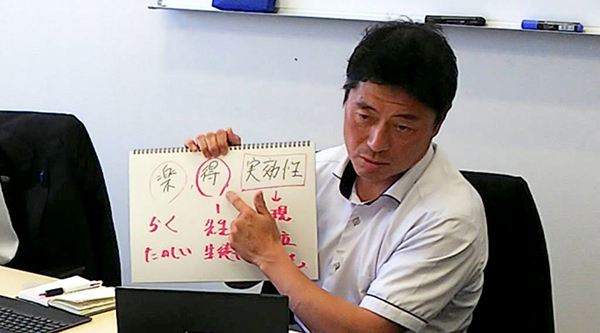 楽、得 実効性
らく 先生 現
たのしい 生徒 位